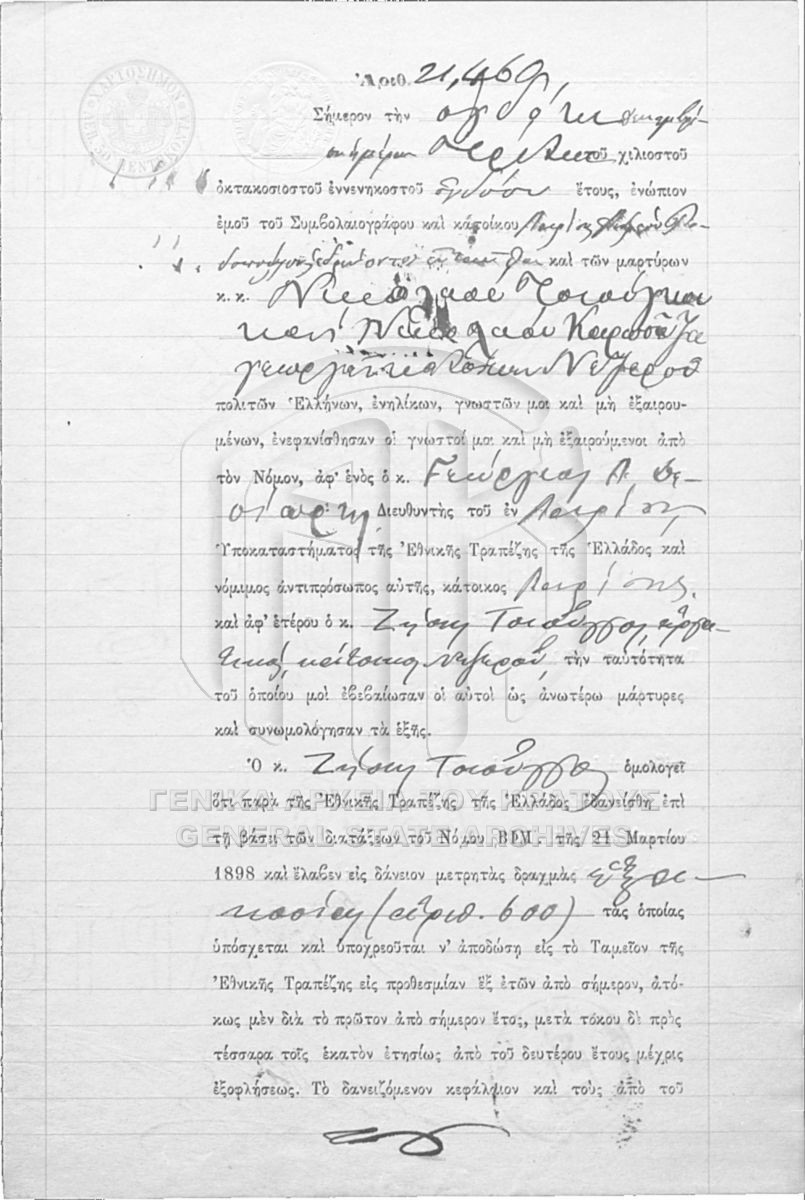 ΧΑΡΤΟΣΗΜΟΝ
Ἀριθ. 21,469
Σήμερον τὴν ὀγδόην
ἡμέραν τοῦ χιλιοστοῦ
ὀκτακοσιοστοῦ ἐννενηκοστοῦ ὀγδόου ἔτους, ἐνώπιον
ἐμοῦ τοῦ Συμβολαιογράφου καὶ κατοίκου Λαρίσης
καὶ τῶν μαρτύρων
κ. κ. Νικολάου
καὶ Νικολάου
γεωργῶν κατοίκων Νεζεροῦ
πολιτῶν Ἑλλήνων, ἐνηλίκων, γνωστῶν μοι καὶ μὴ ἐξαιρου-
μένων, ἐνεφανίσθησαν οἱ γνωστοί μοι καὶ μὴ ἐξαιρούμενοι ἀπὸ
τὸν Νόμον, ἀφ' ἑνὸς ὁ κ. Γεώργιος Α.
Διευθυντὴς τοῦ ἐν Λαρίσῃ
Ὑποκαταστήματος τῆς Ἐθνικῆς Τραπέζης τῆς Ἑλλάδος καὶ
νόμιμος ἀντιπρόσωπος αὐτῆς, κάτοικος Λαρίσης.
καὶ ἀφ' ἑτέρου ὁ κ. Ζήσης Τσιούγγος, ἐργα-
τικός, κάτοικος Νεζεροῦ, τὴν ταὐτότητα
τοῦ ὁποίου μοὶ ἐβεβαίωσαν οἱ αὐτοὶ ὡς ἀνωτέρω μάρτυρες
καὶ συνωμολόγησαν τὰ ἑξῆς.
Ὁ κ. Ζήσης Τσιούγγος ὁμολογεῖ
ὅτι παρὰ τῆς Ἐθνικῆς Τραπέζης τῆς Ἑλλάδος ἐδανείσθη ἐπὶ
ΓΕΝΙΚΑ ΑΡΧΕΙΑ ΤΟΥ ΚΡΑΤΟΥΣ
GENERAL STATE ARCHIVES
τῇ βάσει τῶν διατάξεων τοῦ Νόμου ΒΦΜ. τῆς 21 Μαρτίου
1898 καὶ ἔλαβεν εἰς δάνειον μετρητὰς δραχμὰς ἑξα-
κοσίας (ἀριθ. 600) τὰς ὁποίας
ὑπόσχεται καὶ ὑποχρεοῦται ν' ἀποδώσῃ εἰς τὸ Ταμεῖον τῆς
Ἐθνικῆς Τραπέζης εἰς προθεσμίαν ἓξ ἐτῶν ἀπὸ σήμερον, ἀτό-
κως μὲν διὰ τὸ πρῶτον ἀπὸ σήμερον ἔτος, μετὰ τόκου δὲ πρὸς
τέσσαρα τοῖς ἑκατὸν ἐτησίως ἀπὸ τοῦ δευτέρου ἔτους μέχρις
ἐξοφλήσεως. Τὸ δανειζόμενον κεφάλαιον καὶ τοὺς ἀπὸ τοῦ